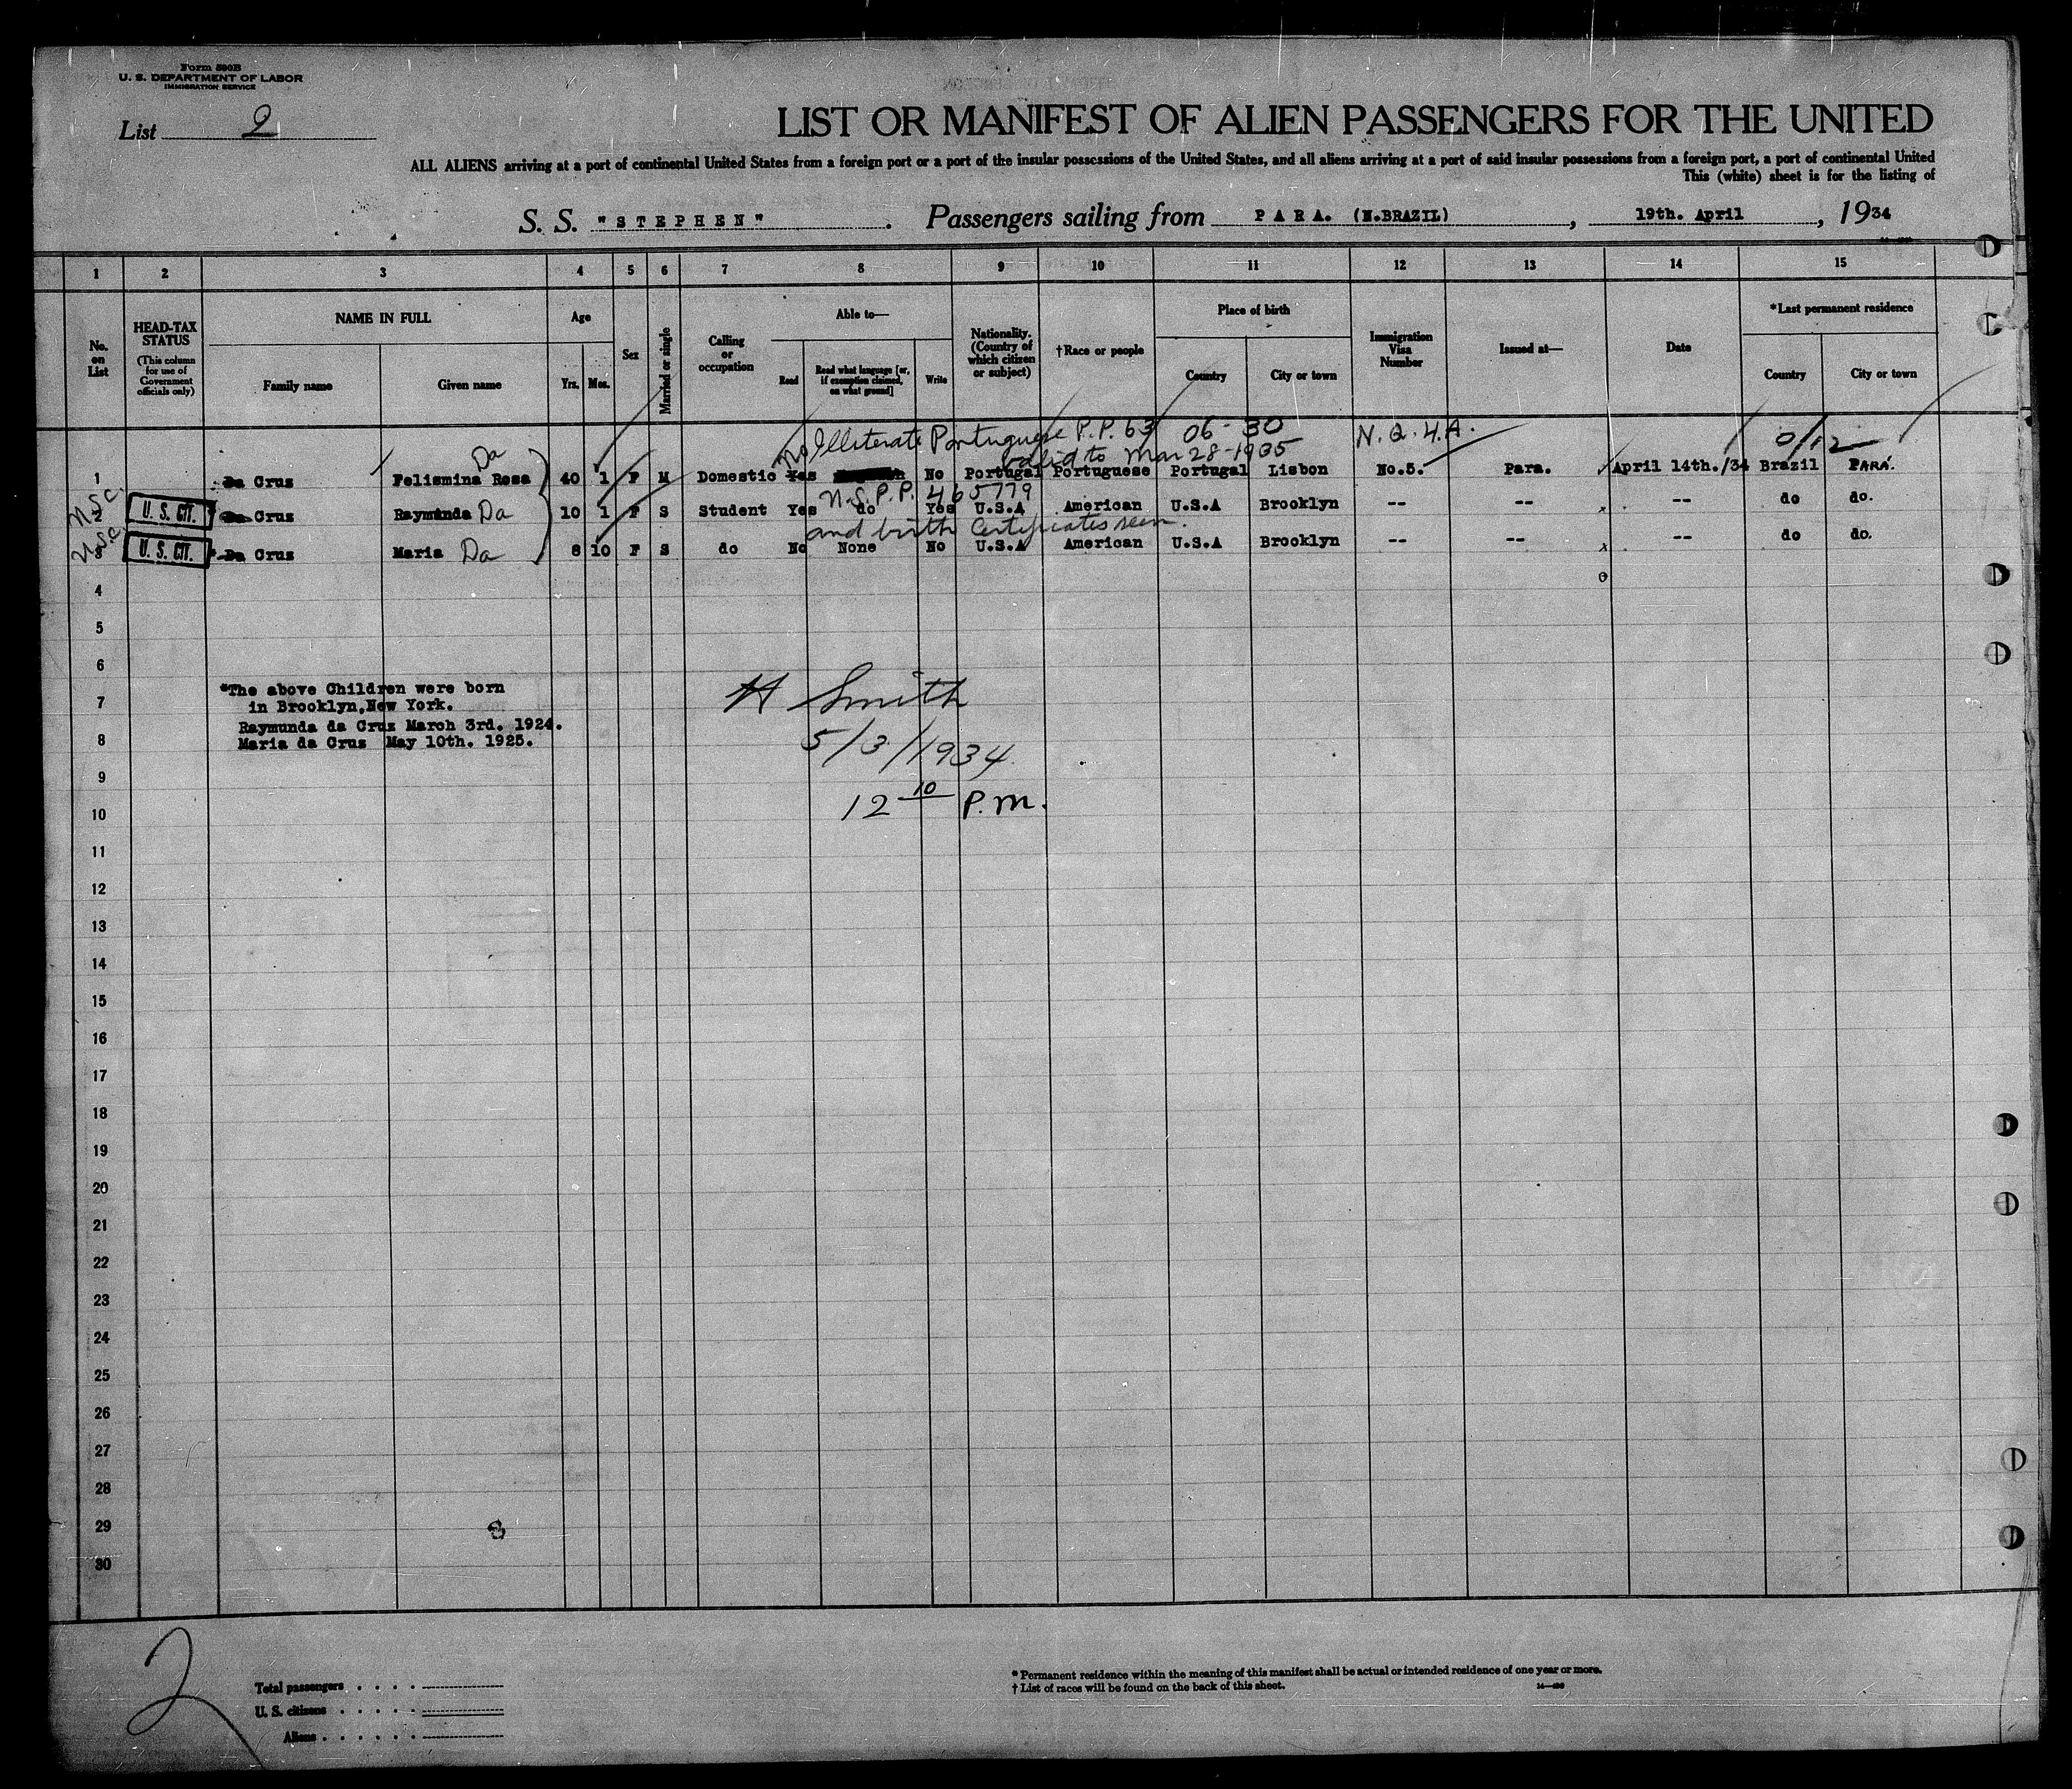 Form 500B
U. S. DEPARTMENT OF LABOR
IMMIGRATION SERVICE
List 2
LIST OR MANIFEST OF ALIEN PASSENGERS FOR THE UNITED
ALL ALIENS arriving at a port of continental United States from a foreign port or a port of the insular possessions of the United States, and all aliens arriving at a port of said insular possessions from a foreign port, a port of continental United
This (white) sheet is for the listing of
S. S. "STEPHEN". Passengers sailing from PARA. (N.BRAZIL), 19th. April, 1934
1 2 3 4 5 6 7 8 9 10 11 12 13 14 15
No. on List
HEAD-TAX STATUS (This column for use of Government officials only)
NAME IN FULL
Family name Given name
Age
Yrs. Mos.
Sex
Married or single
Calling or occupation
Able to—
Read Read what language [or, if exemption claimed, on what ground] Write
Nationality. (Country of which citizen or subject)
†Race or people
Place of birth
Country City or town
Immigration Visa Number
Issued at—
Date
*Last permanent residence
Country City or town
No Illiterate Portuguese P.P. 63 06-30 N.Q.4.A. 0/12
valid to Mar 28-1935
1 Da Crus Felismina Rosa Da 40 1 F M Domestic Yes No Portugal Portuguese Portugal Lisbon No.5. Para. April 14th./34 Brazil PARÁ.
U.S.P.P. 465779
USC 2 U. S. CIT. Da Crus Raymunda Da 10 1 F S Student Yes do Yes U.S.A American U.S.A Brooklyn -- -- -- do do.
and birth Certificates seen.
USC 3 U. S. CIT. Da Crus Maria Da 8 10 F S do No None No U.S.A American U.S.A Brooklyn -- -- -- do do.
4
5
6
*The above Children were born
7 in Brooklyn,New York.
Raymunda da Crus March 3rd. 1924.
8 Maria da Crus May 10th. 1925.
H Smith
5/3/1934
12 10 P.M.
9
10
11
12
13
14
15
16
17
18
19
20
21
22
23
24
25
26
27
28
29
30
3
2
Total passengers
U. S. citizens
Aliens
* Permanent residence within the meaning of this manifest shall be actual or intended residence of one year or more.
† List of races will be found on the back of this sheet.